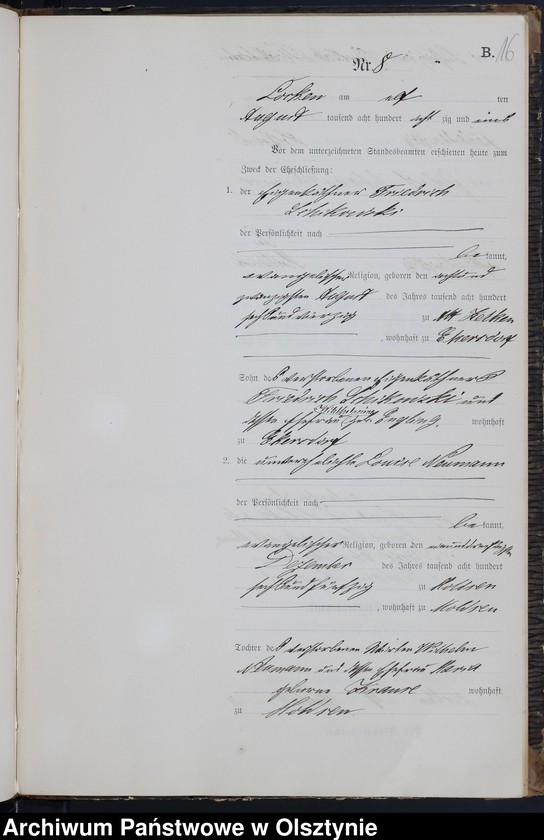 B. 16
Nr 8
Locken am elf ten
August tausend acht hundert acht zig und
Vor dem unterzeichneten Standesbeamten erschienen heute zum
Zweck der Eheschließung:
1. der Eigenkäthner Friedrich
der Persönlichkeit nach
be kannt,
evangelischer Religion, geboren den acht und
zwanzigsten August des Jahres tausend acht hundert
sechsundvierzig zu
, wohnhaft zu Eckersdorf
Sohn des verstorbenen Eigenkäthners
Friedrich und
dessen Ehefrau wohnhaft
zu Eckersdorf
2. die unverehelichte Louise Neumann
der Persönlichkeit nach
be kannt,
evangelischer Religion, geboren den
Dezember des Jahres tausend acht hundert
sechsundfünfzig zu Mohren
, wohnhaft zu Mohren
Tochter des verstorbenen Wirten Wilhelm
Neumann und dessen Ehefrau Maria
geborene Krause wohnhaft
zu Mohren
Archiwum Państwowe w Olsztynie